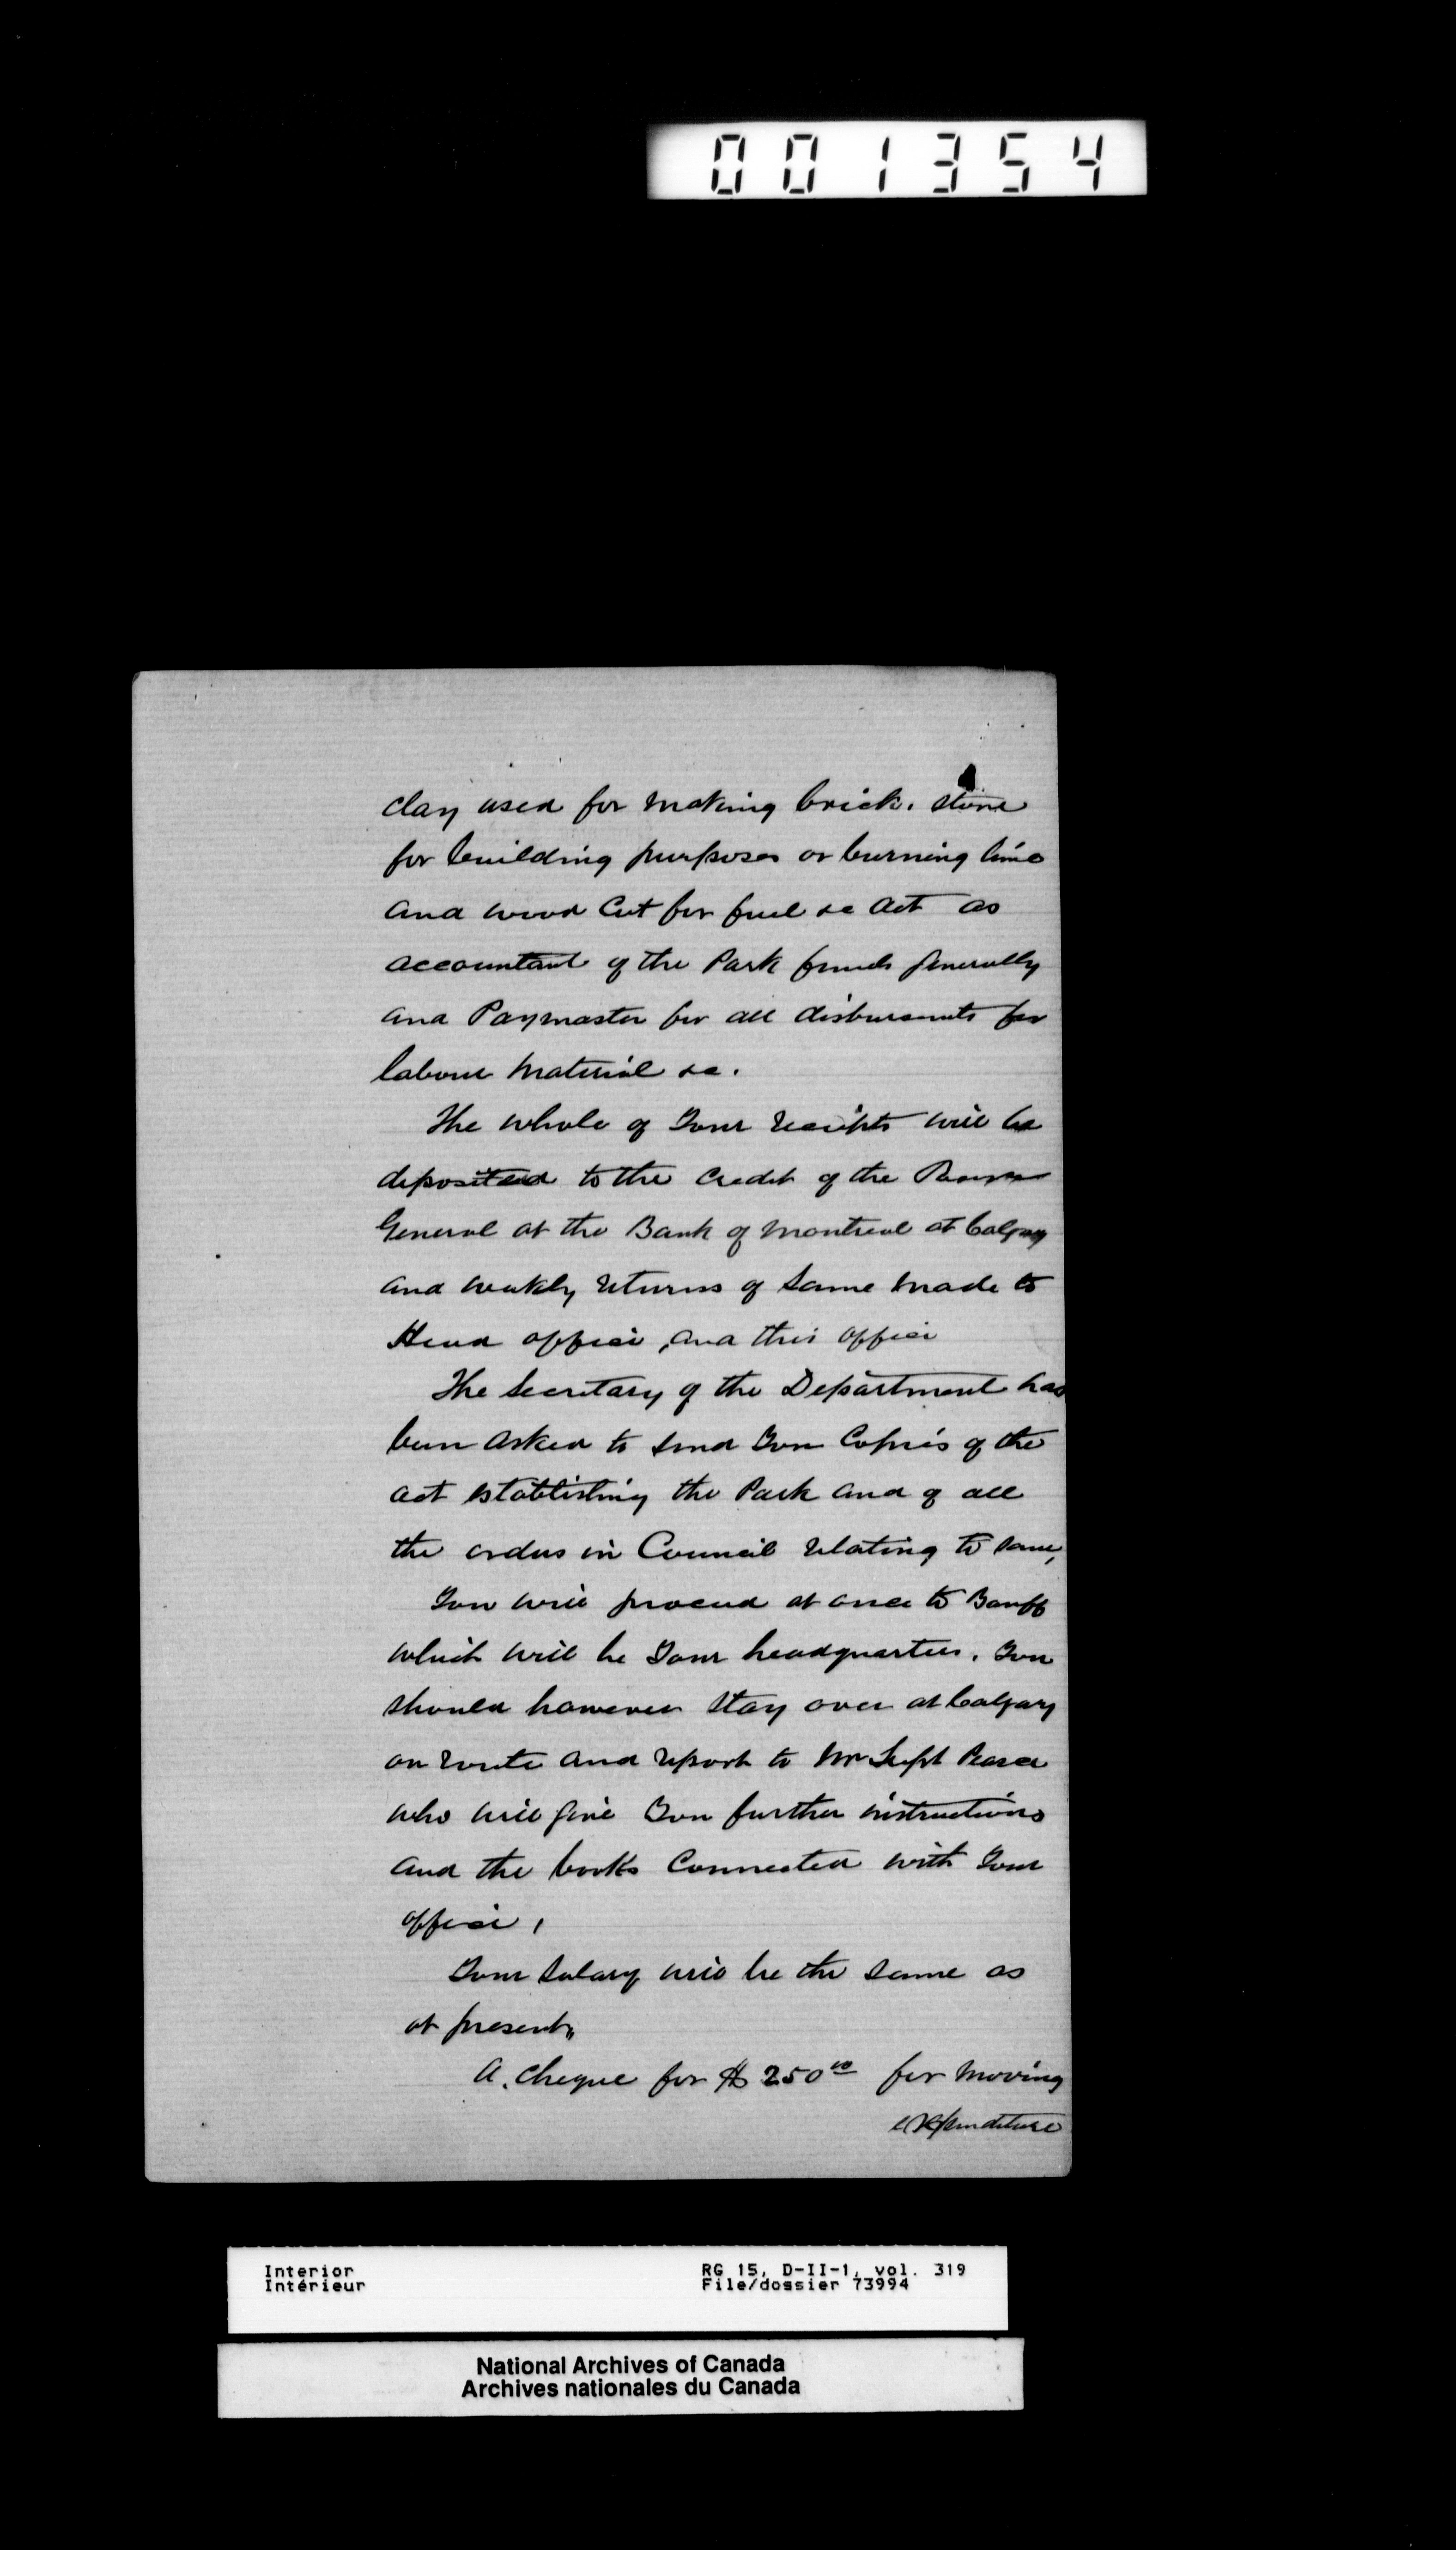 001354
clay used for making brick. stone
for building purposes or burning lime
and wood cut for fuel &c act as
accountant of the Park funds generally
and Paymaster for all disbursments for
labour material &c.
The whole of your receipts will be
deposited to the credit of the
General at the Bank of Montreal at Calgary
and weekly returns of same made to
Head office, and this office
The Secretary of the Department has
been asked to send you copies of the
act establishing the Park and of all
the orders in Council relating to same,
You will proceed at once to Banff
which will be your headquarters. You
should however stay over at Calgary
on route and report to Mr Supt Pearce
who will give you further instructions
and the books connected with your
office,
Your salary will be the same as
at present,
A. cheque for $250 00 for moving
expenditure
Interior
Intérieur
RG 15, D-II-1, vol. 319
File/dossier 73994
National Archives of Canada
Archives nationales du Canada